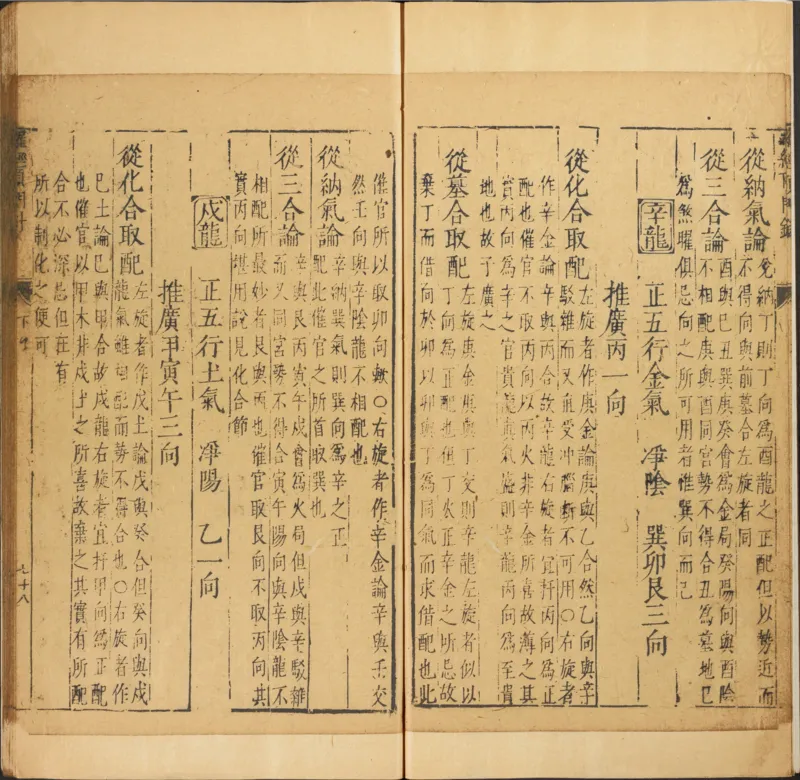 從納氣論兌納丁則丁向為酉龍之正配但以勢近而
不得向與前墓合左旋者同
從三合論酉與巳丑巽庚癸會為金局癸陽向與酉陰
不相配庚與酉同宮勢不得合丑為墓地巳
為煞曜俱忌向之所可用者惟巽向而已
辛龍 正五行金氣 淨陰 巽卯艮三向
推廣丙一向
從化合取配左旋者作庚金論庚與乙合然乙向與辛
駁雜而又直受冲腦斷不可用○右旋者
作辛金論辛與丙合故辛龍右旋者宜扦丙向為正
配也催官不取丙向以丙火非辛金所喜故薄之其
實丙向為辛之官貴龍真氣旋則辛龍丙向為至貴
地也故予廣之
從墓合取配左旋庚金庚與丁交則辛龍左旋者似以
丁向為正配也但丁火正辛金之所忌故
棄丁而借向於卯以卯與丁為同氣而求借配也此
催官所以取卯向歟○右旋者作辛金論辛與壬交
然壬向與辛陰龍不相配也
從納氣論辛納巽氣則巽向為辛之正
配此催官之所首取巽也
從三合論辛與艮丙寅午戌會為火局但戌與辛駁雜
而又同宮勢不得合寅午陽向與辛陰龍不
相配所最妙者艮與丙也催官取艮向不取丙向其
實丙向堪用說見化合節
戌龍 正五行土氣 凈陽 乙一向
推廣甲寅午三向
從化合取配左旋者作戊土論戊與癸合但癸向與戌
龍氣雖相配而勢不得合也○右旋者作
巳土論巳與甲合故戌龍右旋者宜扦甲向為正配
也開催官以甲木非戌土之所喜故棄之其實有所配
合不必深忌但在有
所以制化之便可
七十八